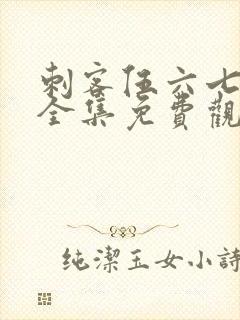 刺客伍六七
全集免費觀
纯潔玉女小詩